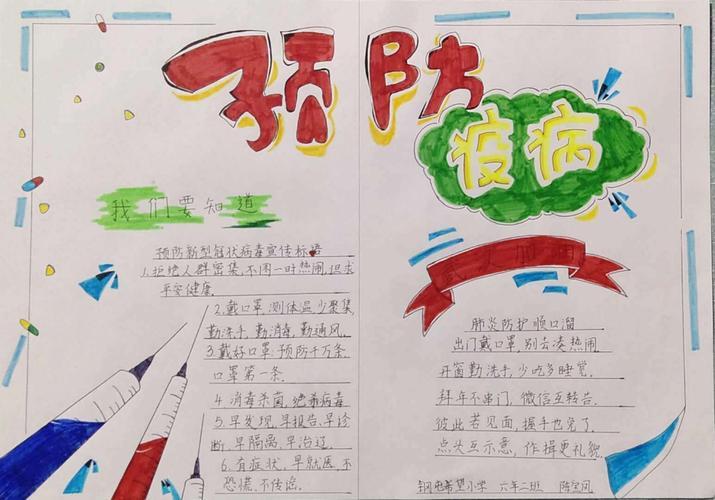 预防
疫病
我们要知道
预防新型冠状病毒宣传标语
1.拒绝人群密集,不图一时热闹,但求
平安健康.
2.戴口罩 测体温 少聚集,
勤洗手,勤消毒,勤通风.
3.戴好口罩:预防千万条,
口罩第一条.
4.消毒杀菌,绝杀病毒
5.早发现,早报告,早诊
断,早隔离,早治疗.
6.有症状,早就医,不
恐慌,不传谣.
肺炎防护顺口溜
出门戴口罩,别去凑热闹.
开窗勤洗手,少吃多睡觉.
拜年不串门,微信互转告.
彼此若见面,握手也免了.
点头互示意,作揖更礼貌.
希望小学 六年二班